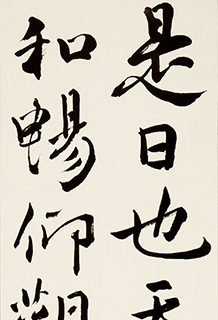 是日也天
和暢仰觀